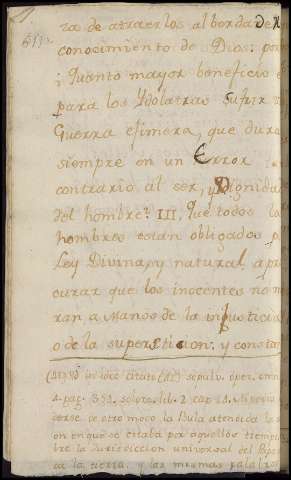 ra de atraerlos al borda de
conocimiento de Dios: por
¡Quanto mayor beneficio e
para los Ydolatras Sufrir
Guerra efimera, que dura
siempre en un Error
contrario al ser, y Dignida
del hombre? III, Que todos lo
hombres estan obligados p
Ley Divina, y natural, a pr
ocurar que los inocentes no m
ran a Manos de la injusticia
o de la superstición: y constan
in loco citato Sepulv. oper.
pag. 351. lib. 2. cap.
de otro modo la Bula atendida
on en que se estaba por aquellos tiempo
bre la Jurisdiccion universal del Papa
en la tierra, y las mismas palabras